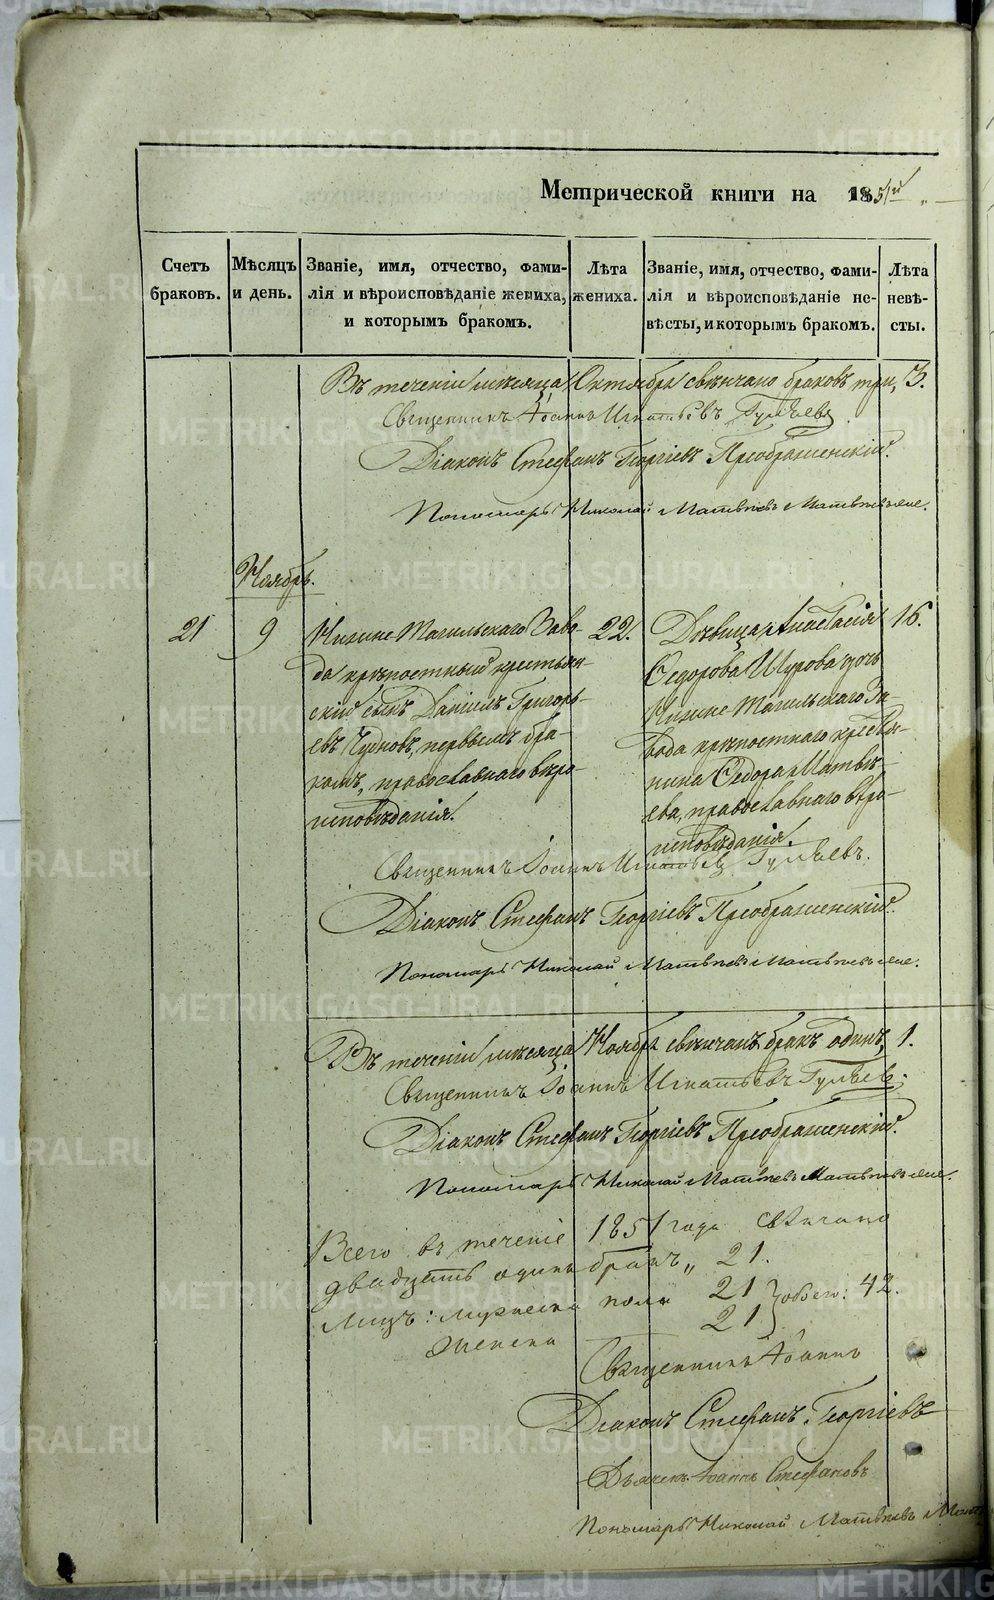 Метрической книги на 1851й
Счетъ браковъ.
Мѣсяцъ и день.
Званіе, имя, отчество, фами-
лія и вѣроисповѣданіе жениха,
и которымъ бракомъ.
Лѣта жениха.
Званіе, имя, отчество, фами-
лія и вѣроисповѣданіе не-
вѣсты, и которымъ бракомъ.
Лѣта невѣ-
сты.
Въ теченіи мѣсяца Октября свѣнчано браковъ три, 3.
Священникъ Іоаннъ Игнатьевъ
Діаконъ Стефанъ Георгіевъ Преображенскій.
Пономарь Николай Матвѣевъ
Ноябрь.
21
9
Нижне Тагильскаго Заво-
да крѣпостный крестьян-
скій сынъ Даніилъ Григорь-
евъ Чудновъ, первымъ бра-
комъ, православнаго вѣро-
исповѣданія.
22.
Дѣвица Анастасія
Ѳедорова Шурова дочь
Нижне Тагильскаго За-
вода крѣпостнаго крестья-
нина Ѳедора Матвѣ-
ева, православнаго вѣро-
исповѣданія.
16.
Священникъ Іоаннъ Игнатьевъ
Діаконъ Стефанъ Георгіевъ Преображенскій.
Пономарь Николай Матвѣевъ
Въ теченіи мѣсяца Ноября свѣнчанъ бракъ одинъ, 1.
Священникъ Іоаннъ Игнатьевъ
Діаконъ Стефанъ Георгіевъ Преображенскій.
Пономарь Николай Матвѣевъ
Всего въ теченіе 1851 года свѣнчано
двадцать одинъ бракъ „ 21.
Лицъ: мужеска пола 21 } обоего: 42.
женска 21
Священникъ Іоаннъ
Діаконъ Стефанъ Георгіевъ
Дьячекъ Іоаннъ Стефановъ
Пономарь Николай Матвѣевъ
METRIKI.GASO-URAL.RU